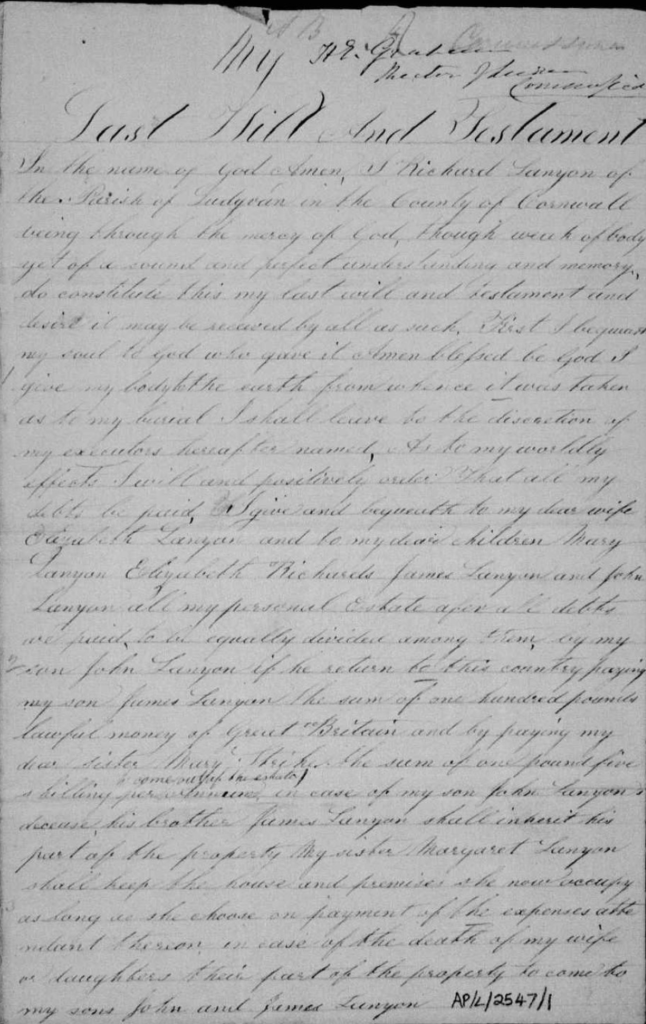 My
H E Graham
Commissioner
Last Will And Testament
In the name of God Amen, I Richard Lanyon of
the Parish of Ludgvan in the County of Cornwall
being through the mercy of God, though weak of body
yet of a sound and perfect understanding and memory,
do constitute this my last will and testament and
desire it may be received by all as such, First I bequeath
my soul to God who gave it Amen blessed be God I
give my body to the earth from whence it was taken
as to my burial I shall leave to the discretion of
my executors hereafter named, As to my worldly
effects I will and positively order That all my
debts be paid, I give and bequeath to my dear wife
Elizabeth Lanyon and to my dear children Mary
Lanyon Elizabeth Richards James Lanyon and John
Lanyon all my personal Estate after all debts
are paid, to be equally divided among them, by my
son John Lanyon if he return to this country paying
my son James Lanyon the sum of one hundred pounds
lawful money of Great Britain and by paying my
dear sister Mary the sum of one pound five
to come out of the estate
shilling per annum, in case of my son John Lanyon's
decease, his brother James Lanyon shall inherit his
part of the property My sister Margaret Lanyon
shall keep the house and premises she now occupy
as long as she choose on payment of the expenses atte
ndant thereon, in case of the death of my wife
or daughters their part of the property to come to
my sons John and James Lanyon
AP/L/2547/1